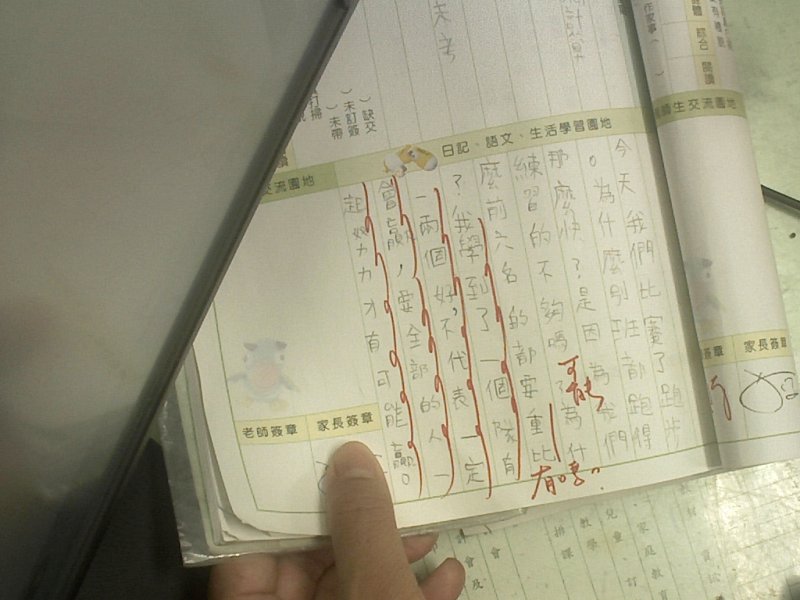 在家事（
閱讀
綜合
師生交流園地
家長簽章
章
未考
計算
打掃
）缺交
）未訂簽
）未帶
日記、語文、生活學習園地
交流園地
今天我們比賽了跑步
。為什麼別班都跑得
那麼快？是因為我們
練習的不夠嗎？為什
麼前六名的都要重比
？我學到了一個隊有
一兩個好，不代表一定
會贏，要全部的人一
起努力才有可能贏。
可能
有嗎？
老師簽章
家長簽章